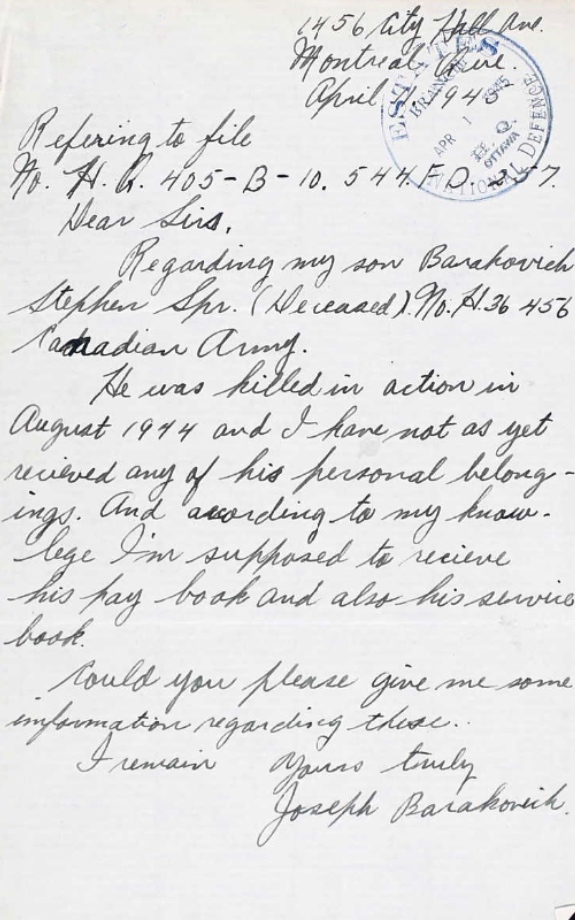 1456 City Hall Ave.
Montreal Que.
April 11, 1945
ESTATES
BRANCH
APR 1 1945
OTTAWA
NATIONAL DEFENCE
Refering to file
No. H.Q. 405-B-10. 544. F.D.
Dear Sirs,
Regarding my son Barakovich
Stephen Spr. (Deceased). No. H.36 456
Canadian Army.
He was killed in action in
August 1944 and I have not as yet
recieved any of his personal belong-
ings. And acording to my know-
lege I'm supposed to recieve
his pay book and also his service
book.
Could you please give me some
information regarding these..
I remain Yours truly
Joseph Barakovich.